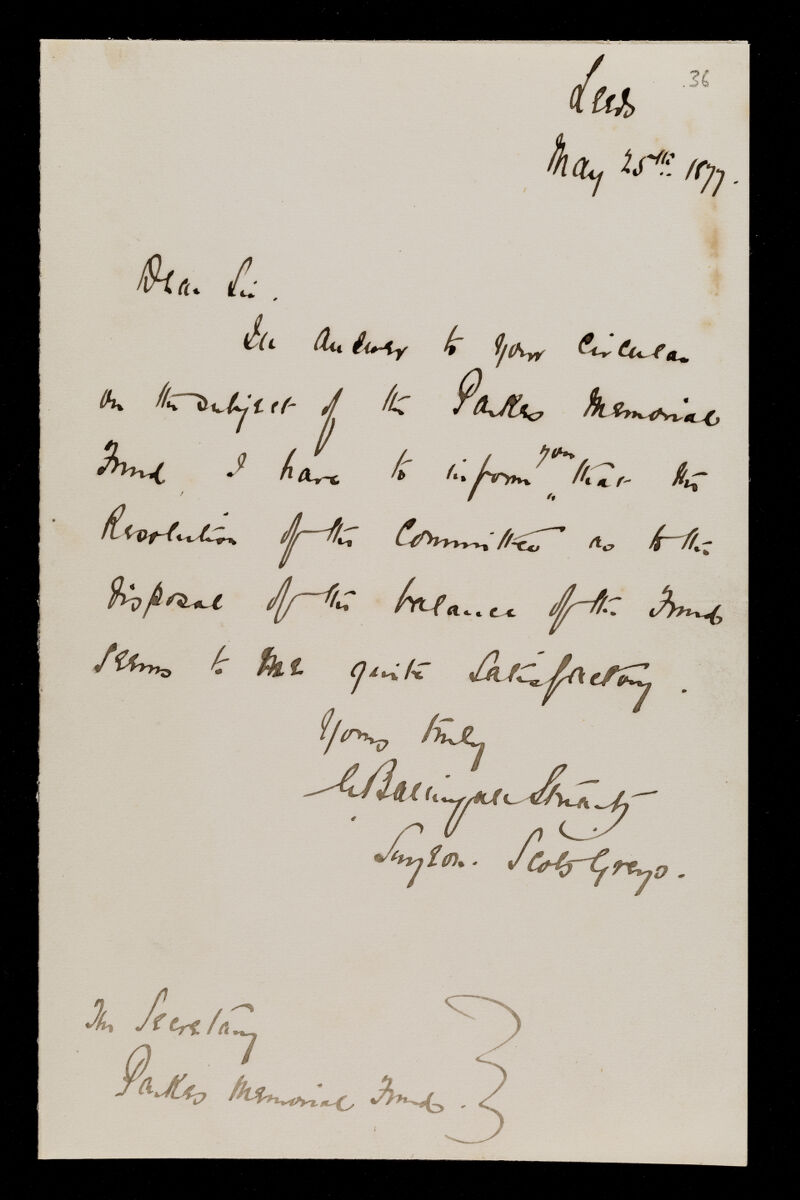 36
Leeds
May 25th 1877.
Dear Sir.
In answer to your circular
on the subject of the Parkes Memorial
Fund, I have to inform you that the
Resolution of the Committee as to the
disposal of the balance of the Fund
seems to me quite satisfactory.
Yours truly
G Ballingall Stuart
Surgeon. Scots Greys.
The Secretary
Parkes Memorial Fund.